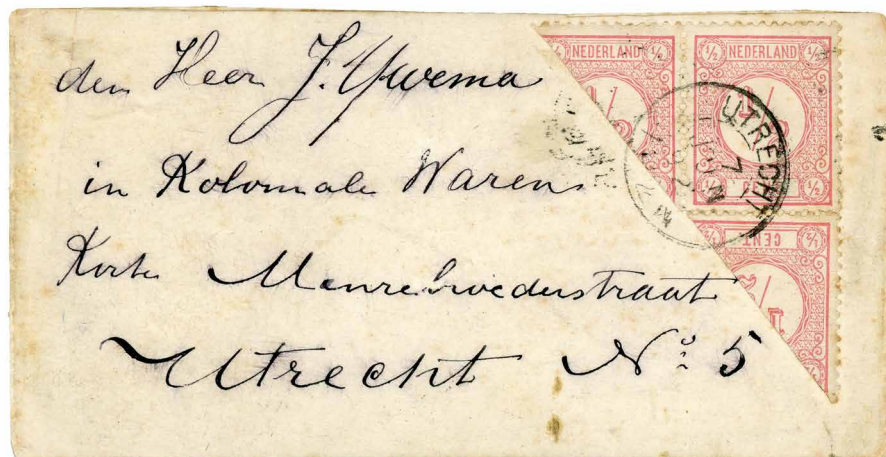 den Heer J. Ywema
in Kolomale Waren
Korte Menrebroederstraat
Utrecht No 5
½ NEDERLAND ½
½ NEDERLAND ½
UTRECHT
½ CENT ½